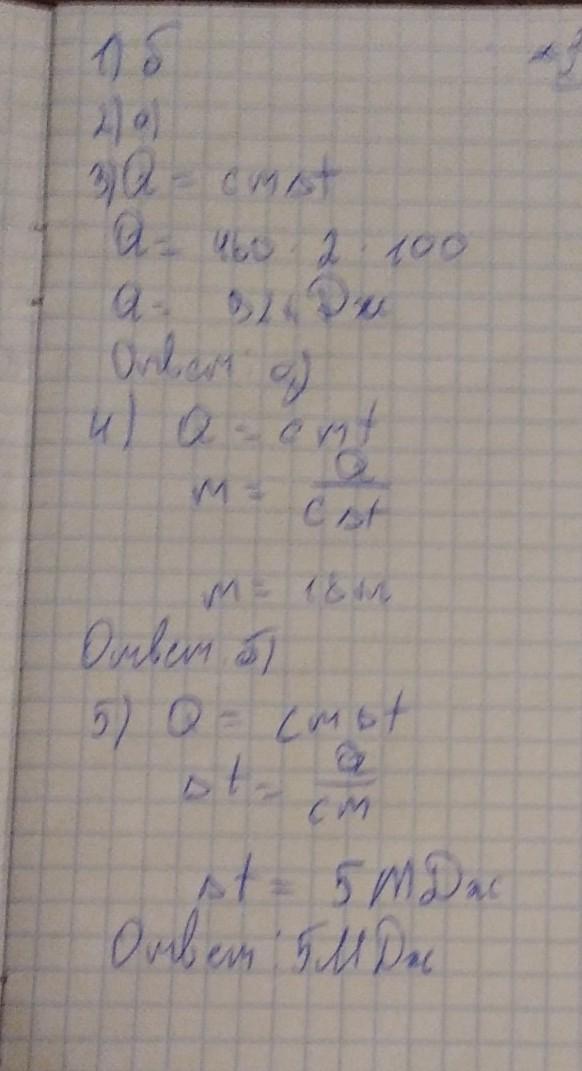 1) б
2) а)
3) Q = cmΔt
Q = 460 · 2 · 100
Q = Дж
Ответ: а)
4) Q = cmt
m = Q / cΔt
m =
Ответ б)
5) Q = cmΔt
Δt = Q / cm
Δt = 5 МДж
Ответ: 5МДж